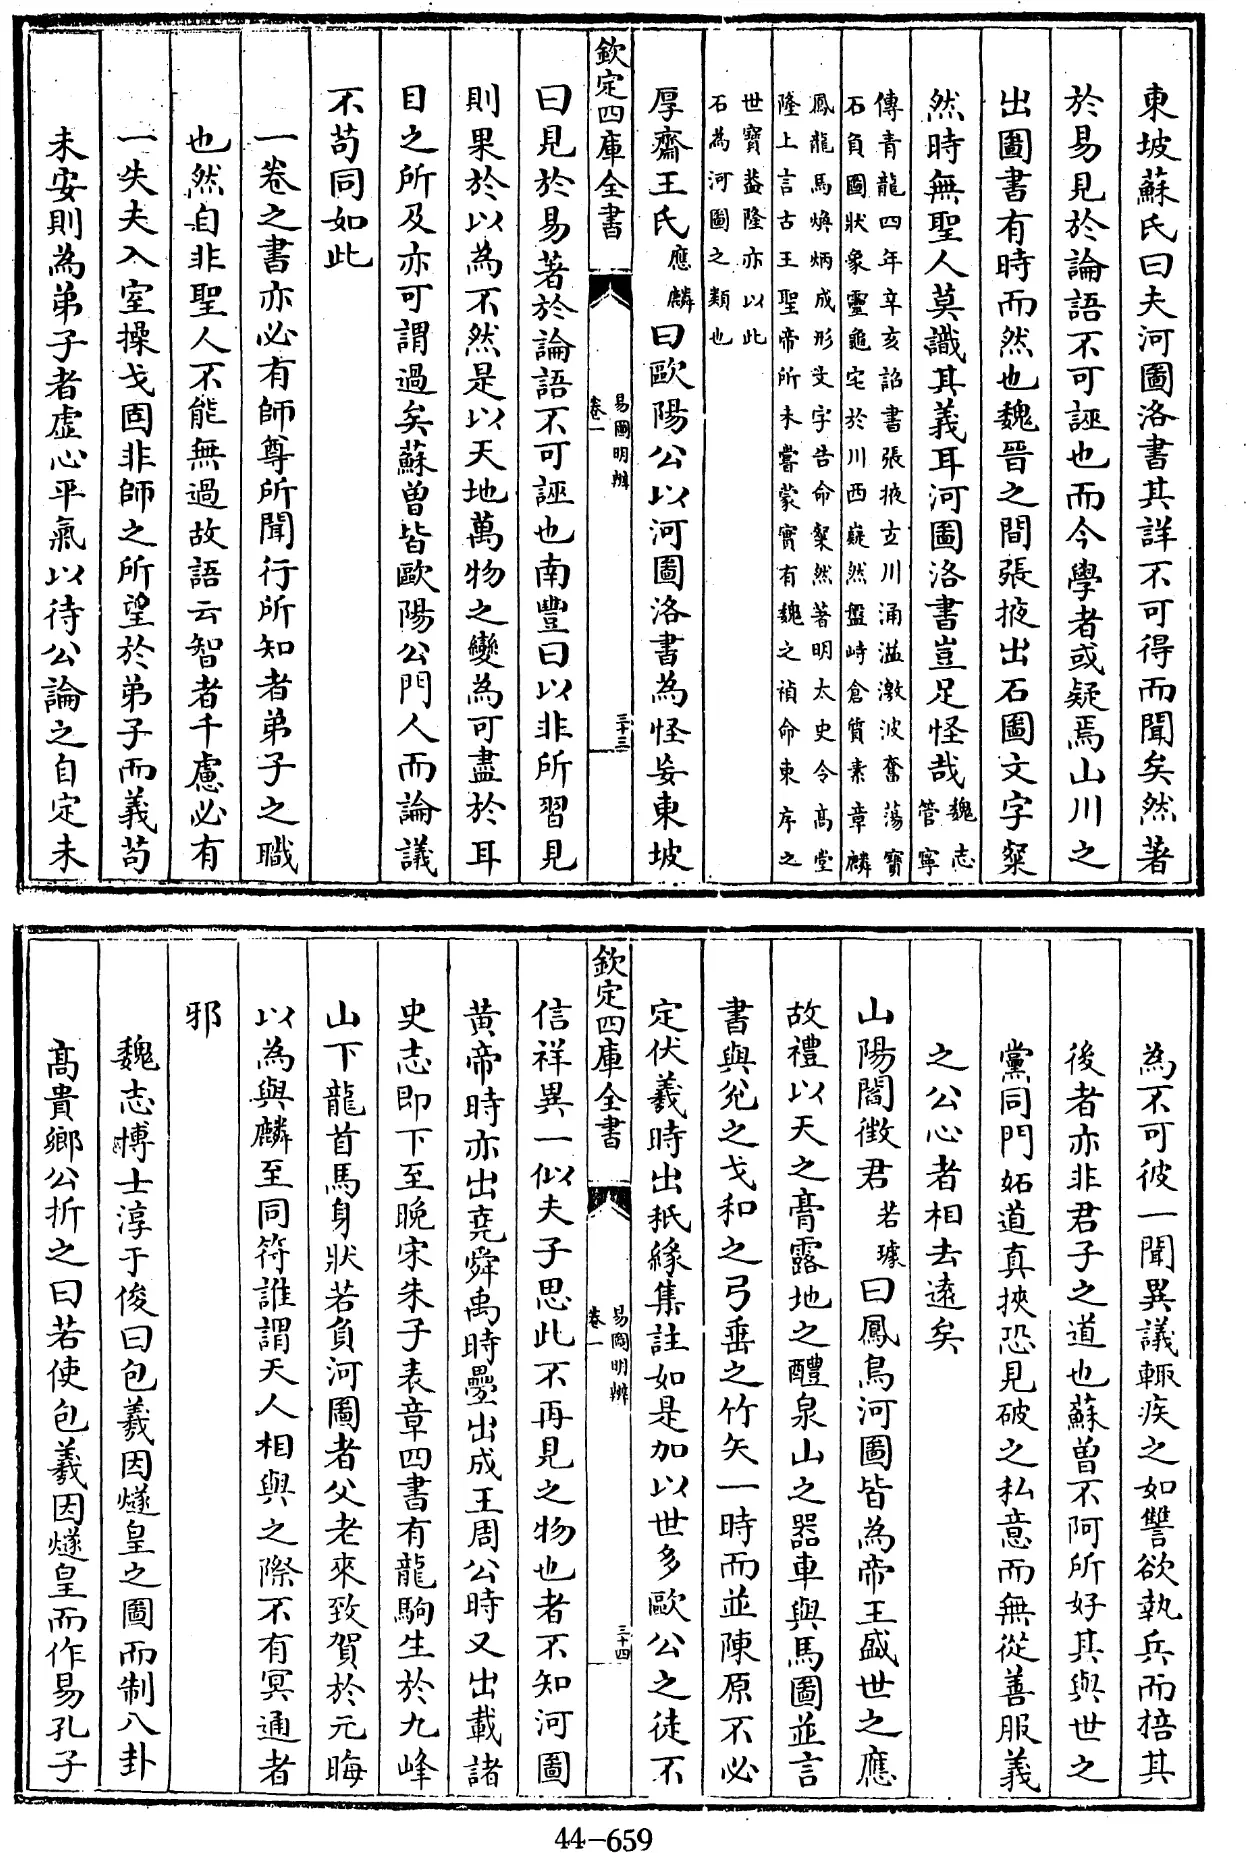 東坡蘇氏曰夫河圖洛書其詳不可得而聞矣然著
於易見於論語不可誣也而今學者或疑焉山川之
出圖書有時而然也魏晉之間張掖出石圖文字粲
然時無聖人莫識其義耳河圖洛書豈足怪哉魏志
管寧
傳青龍四年辛亥詔書張掖玄川涌溢激波奮蕩寶
石負圖狀象靈龜宅於川西嶷然盤峙倉質素章麟
鳳龍馬煥炳成形文字告命粲然著明太史令高堂
隆上言古王聖帝所未嘗蒙實有魏之禎命東序之
世寶葢隆亦以此
石為河圖之類也
厚齋王氏應麟曰歐陽公以河圖洛書為怪妄東坡
欽定四庫全書
易圖明辨
卷一
三十三
曰見於易著於論語不可誣也南豐曰以非所習見
則果於以為不然是以天地萬物之變為可盡於耳
目之所及亦可謂過矣蘇曾皆歐陽公門人而論議
不苟同如此
一卷之書亦必有師尊所聞行所知者弟子之職
也然自非聖人不能無過故語云智者千慮必有
一失夫入室操戈固非師之所望於弟子而義苟
未安則為弟子者虛心平氣以待公論之自定未
為不可彼一聞異議輒疾之如讐欲執兵而掊其
後者亦非君子之道也蘇曾不阿所好其與世之
黨同門妬道真挾恐見破之私意而無從善服義
之公心者相去遠矣
山陽閻徵君若璩曰鳳鳥河圖皆為帝王盛世之應
故禮以天之膏露地之醴泉山之器車與馬圖並言
書與兊之戈和之弓垂之竹矢一時而並陳原不必
定伏羲時出秖緣集註如是加以世多歐公之徒不
欽定四庫全書
易圖明辨
卷一
三十四
信祥異一似夫子思此不再見之物也者不知河圖
黄帝時亦出堯舜禹時疊出成王周公時又出載諸
史志即下至晚宋朱子表章四書有龍駒生於九峰
山下龍首馬身狀若負河圖者父老來致賀於元晦
以為與麟至同符誰謂天人相與之際不有冥通者
邪
魏志博士淳于俊曰包羲因燧皇之圖而制八卦
高貴鄉公折之曰若使包羲因燧皇而作易孔子
44-659